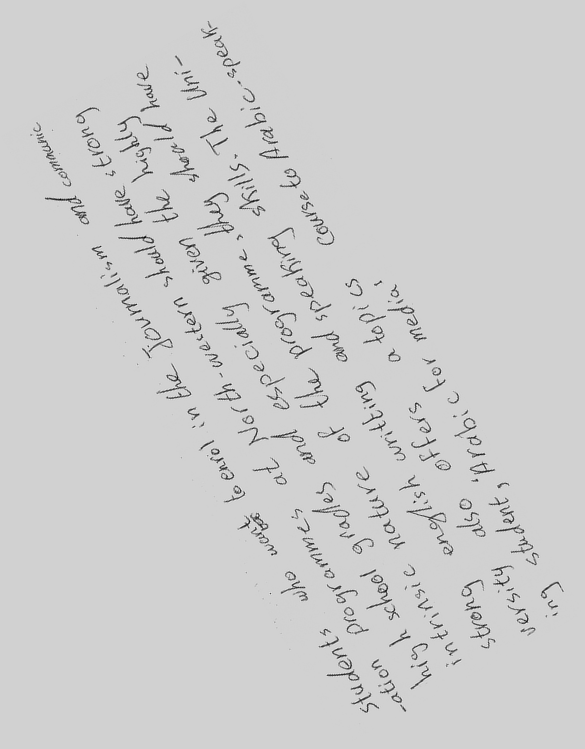 students who want to enrol in the Journalism and communic
-ation programmes at North-western should have strong
high school grades and especially given the highly
intrinsic nature of the programme, they should have
strong english writting and speaking skills. The Uni-
versity also offers a topics course to Arabic-speak-
ing students, 'Arabic for media.